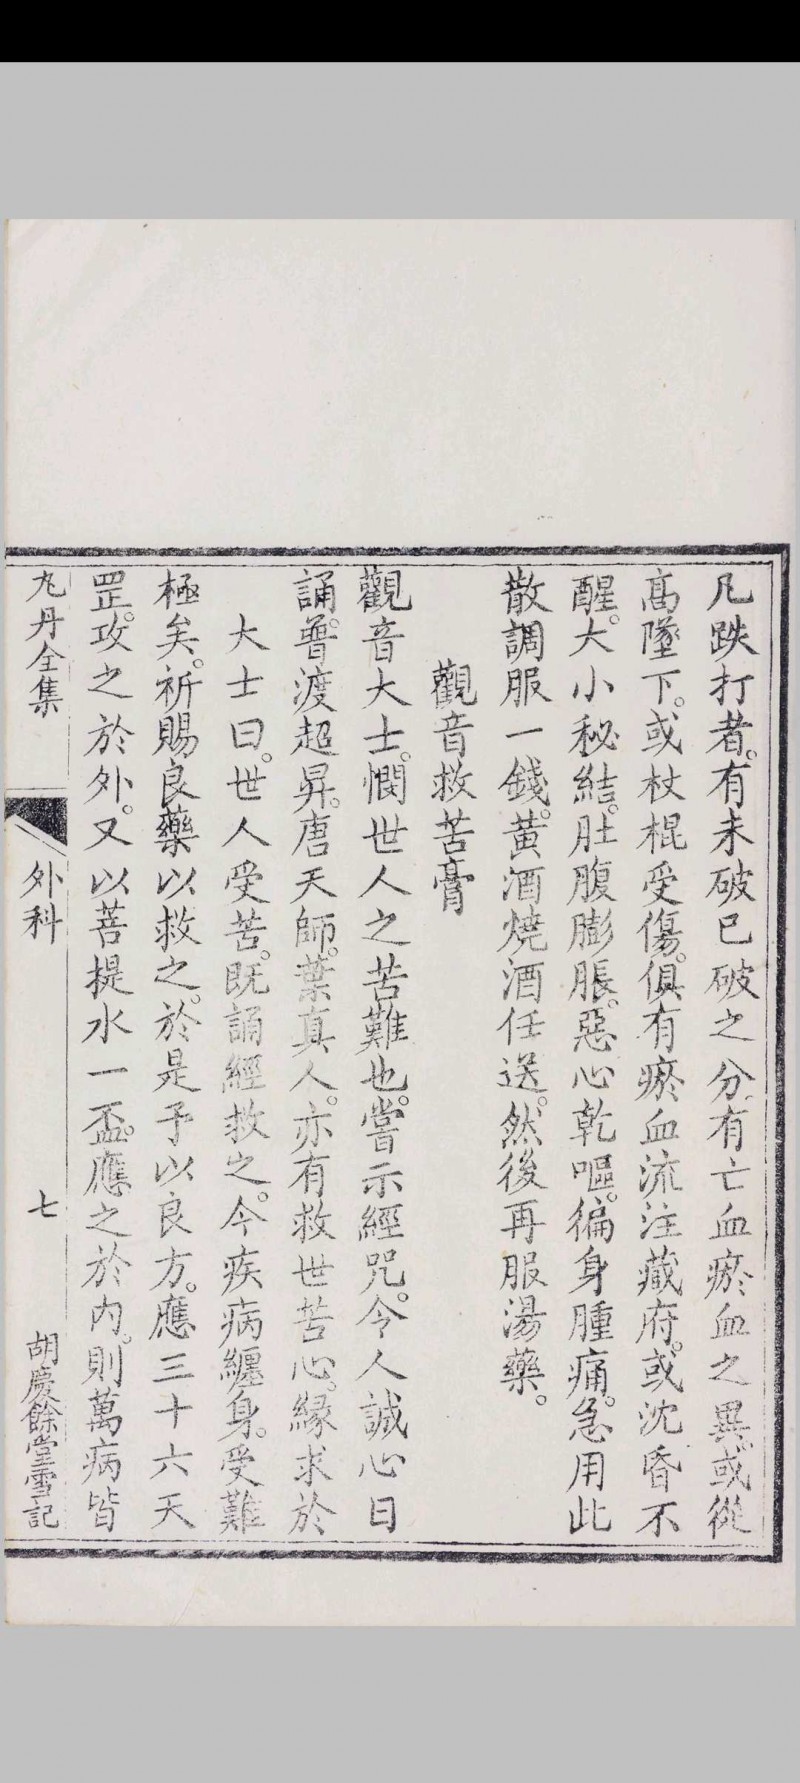 凡跌打者。有未破已破之分。有亡血瘀血之異。或從
高墜下。或杖棍受傷。俱有瘀血流注藏府。或沈昏不
醒。大小秘結。肚腹膨脹。惡心乾嘔。徧身腫痛。急用此
散調服一錢。黃酒燒酒任送。然後再服湯藥。
觀音救苦膏
觀音大士。憫世人之苦難也。嘗示經咒。令人誠心日
誦。普渡超昇。唐天師。葉真人。亦有救世苦心。緣求於
大士曰。世人受苦。既誦經救之。今疾病纏身。受難
極矣。祈賜良藥以救之。於是予以良方。應三十六天
罡。攻之於外。又以菩提水一盃。應之於內。則萬病皆
丸丹全集
外科
七
胡慶餘堂雪記